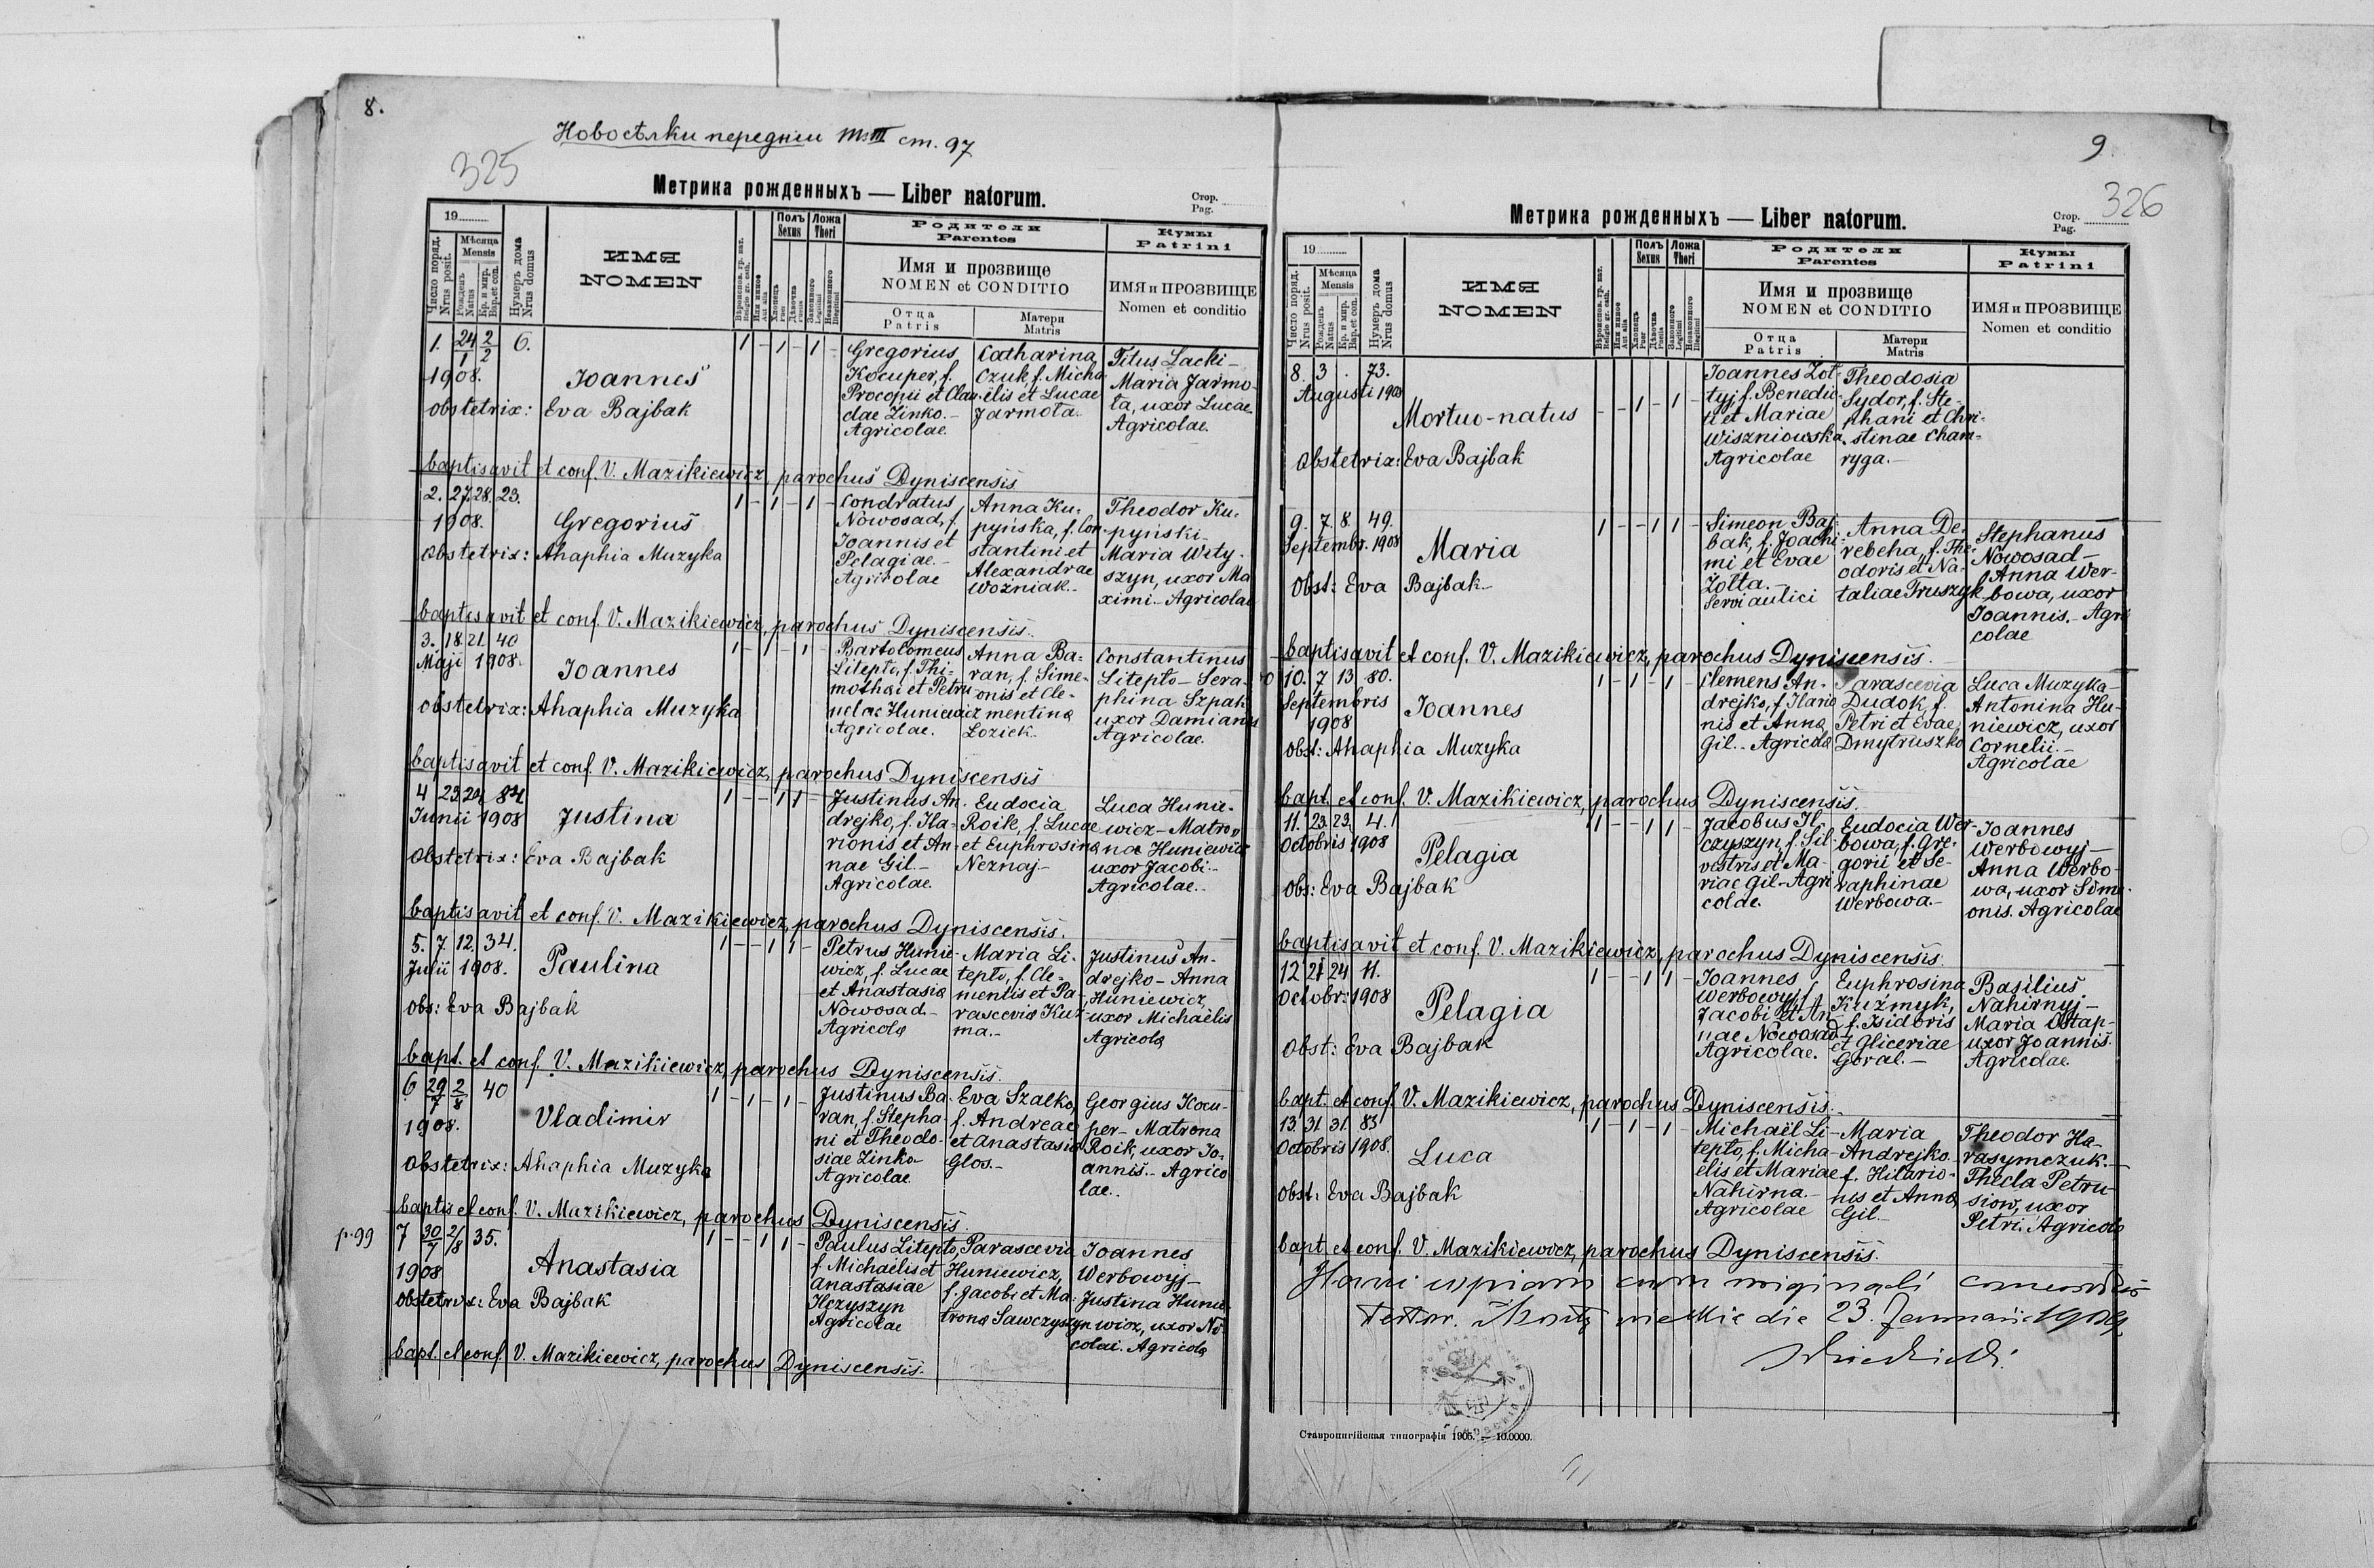 8.
Новосѣлки переднiи Т. III ст. 97
325
Метрика рожденныхъ — Liber natorum.
Стор.
Pag.
19
Число поряд.
Nrus posit.
Мѣсяца
Mensis
Рожденъ
Natus
Кр. и мир.
Bap. et con.
Нумеръ дома
Nrus domus
ИМЯ
NOMEN
Вѣроисповѣд. гр. кат.
Religio gr. cath.
Или инное
Aut alia
Полъ
Sexus
Хлопецъ
Puer
Дѣвочка
Puella
Ложа
Thori
Законного
Legitimi
Незаконного
Illegitimi
Родители
Parentes
Имя и прозвище
NOMEN et CONDITIO
Отца
Patris
Матери
Matris
Кумы
Patrini
ИМЯ и ПРОЗВИЩЕ
Nomen et conditio
1. 24/1 2/2 6.
1908.
Joannes
1 - 1 - 1 -
Gregorius
Kocuper, f.
Procopii et Clau-
dae Zinko.-
Agricolae.
Catharina
Czuk f. Micha-
ëlis et Lucae
Jarmota.
Titus Lacki-
Maria Jarmo-
ta, uxor Lucae
Agricolae.
obstetrix: Eva Bajbak
baptisavit et conf. V. Mazikiewicz, parochus Dyniscensis
2. 27. 28. 23.
1908.
Gregorius
1 - 1 - 1 -
Condratus
Nowosad, f.
Joannis et
Pelagiae.-
Agricolae
Anna Ku-
pyńska, f. Con-
stantini et
Alexandrae
Woźniak.-
Theodor Ku-
pyński-
Maria Wity-
szyn, uxor Ma
ximi.- Agricolae
Obstetrix: Ahaphia Muzyka
baptisavit et conf. V. Mazikiewicz, parochus Dyniscensis.
3. 18 21 40
Maji 1908.
Joannes
1 - 1 - 1 -
Bartolomeus
Litepto, f. Thi-
mothei et Petru-
nelae Huniewicz
Agricolae.
Anna Ba-
ran, f. Sime-
onis et Cle-
mentina
Loziek.
Constantinus
Litepto - Sera-
phina Szpak
uxor Damianis
Agricolae.
obstetrix: Ahaphia Muzyka
baptisavit et conf. V. Mazikiewicz, parochus Dyniscensis
4 23 24 84
Junii 1908
Justina
1 - - 1 1 -
Justinus An-
drejko, f. Ila-
rionis et An-
nae Gil.-
Agricolae.
Eudocia
Roik, f. Lucae
et Euphrosina
Neznaj.-
Luca Hunie-
wicz - Matro
na Huniewicz
uxor Jacobi.-
Agricolae.-
Obstetrix: Eva Bajbak
baptisavit et conf. V. Mazikiewicz, parochus Dyniscensis.
5. 7. 12. 34.
Julii 1908.
Paulina
1 - - 1 1 -
Petrus Hunie-
wicz, f. Lucae
et Anastasia
Nowosad.-
Agricola
Maria Li-
tepto, f. Cle-
mentis et Pa-
rascevia Kuz-
ma.-
Justinus An-
drejko - Anna
Huniewicz
uxor Michaëlis
Agricola
Obs: Eva Bajbak
bapt. et conf. V. Mazikiewicz, parochus Dyniscensis.
6 29/7 2/8 40
1908.
Vladimir
1 - 1 - 1 -
Justinus Ba-
ran, f. Stepha-
ni et Theodo-
siae Zinko
Agricolae.
Eva Szalko,
f. Andreae
et Anastasia
Glos.-
Georgius Kocu-
per - Matrona
Roik, uxor Jo-
annis.- Agrico
lae.
Obstetrix: Ahaphia Muzyka
baptis et conf. V. Mazikiewicz, parochus Dyniscensis.
p. 99
7 30/7 2/8 35.
1908
Anastasia
1 - - 1 1 -
Paulus Litepto,
f. Michaelis et
Anastasiae
Ilczyszyn
Agricolae
Parascevia
Huniewicz,
f. Jacobi et Ma-
trona Sawczyszyn
Joannes
Werbowyj-
Justina Hunie-
wicz, uxor Ni
colai. Agricola
Obstetrix: Eva Bajbak
bapt. et conf. V. Mazikiewicz, parochus Dyniscensis.
9.
326
Метрика рожденныхъ — Liber natorum.
Стор.
Pag.
19
Число поряд.
Nrus posit.
Мѣсяца
Mensis
Рожденъ
Natus
Кр. и мир.
Bap. et con.
Нумеръ дома
Nrus domus
ИМЯ
NOMEN
Вѣроисповѣд. гр. кат.
Religio gr. cath.
Или инное
Aut alia
Полъ
Sexus
Хлопецъ
Puer
Дѣвочка
Puella
Ложа
Thori
Законного
Legitimi
Незаконного
Illegitimi
Родители
Parentes
Имя и прозвище
NOMEN et CONDITIO
Отца
Patris
Матери
Matris
Кумы
Patrini
ИМЯ и ПРОЗВИЩЕ
Nomen et conditio
8. 3 . 73.
Augusti 1908
Mortuo-natus
- - 1 - 1 -
Joannes Zot-
tyj, f. Benedic-
ti et Mariae
Wiszniowska.
Agricolae
Theodosia
Sydor, f. Ste-
phani et Chri-
stinae Cham-
ryga.-
Obstetrix: Eva Bajbak
9. 7. 8. 49.
Septembr. 1908
Maria
1 - - 1 1 -
Simeon Baj-
bak, f. Joachi-
mi et Evae
Zotta.-
Servi aulici
Anna De-
rebeha, f. The-
odoris et Na-
taliae Truszyk
Stephanus
Nowosad-
Anna Wer-
bowa, uxor
Joannis.- Agri
colae
Obst: Eva Bajbak-
baptisavit et conf. V. Mazikiewicz, parochus Dyniscensis.
10. 7 13 80.
Septembris
1908
Joannes
1 - 1 - 1 -
Clemens An-
drejko, f. Ilario
nis et Anna
Gil.- Agricola
Parascevia
Dudok, f.
Petri et Evae
Dmytruszko
Luca Muzyka-
Antonina Hu-
niewicz, uxor
Cornelii.-
Agricolae
Obst: Ahaphia Muzyka
bapt. et conf. V. Mazikiewicz, parochus Dyniscensis.
11. 23. 23. 4.
Octobris 1908
Pelagia
1 - - 1 1 -
Jacobus Il-
czyszyn, f. Sil-
vestris et Ma-
riae Gil - Agri
colae.
Eudocia Wer-
bowa, f. Gre-
gorii et Se-
raphinae
Werbowa.-
Joannes
Werbowyj-
Anna Werbo-
wa, uxor Sime-
onis. Agricolae
Obs: Eva Bajbak
baptisavit et conf. V. Mazikiewicz, parochus Dyniscensis.
12 21 24 11.
Octobr: 1908
Pelagia
1 - - 1 1 -
Joannes
Werbowyj, f.
Jacobi et An-
nae Nowosad
Agricolae.
Euphrosina
Kuźmyk,
f. Isidoris
et Gliceriae
Goral.-
Basilius
Nahirnyj-
Maria Ostap-
uxor Joannis.
Agricolae.
Obst: Eva Bajbak
bapt. et conf. V. Mazikiewicz, parochus Dyniscensis.
13 31. 31. 83
Octobris 1908.
Luca
1 - 1 - 1 -
Michaël Li-
tepto, f. Micha-
ëlis et Mariae
Nahirna.-
Agricolae
Maria
Andrejko
f. Hilario-
nis et Anna
Gil.-
Theodor Ha-
rasymczuk.-
Thecla Petru-
siow, uxor
Petri. Agricola
Obst: Eva Bajbak
bapt. et conf. V. Mazikiewicz, parochus Dyniscensis.
Hanc copiam cum originali
die 23. Januarii 1909.
Ставропигійская типографія 1905. — 10.0000.